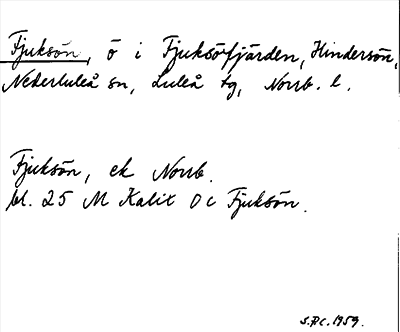 Fjuksön, ö i Fjuksöfjärden, Hindersön,
Nederluleå sn, Luleå tg, Norrb. l.
Fjuksön, ek Norrb.
bl. 25 M Kalix Ö c Fjuksön.
S.P.C. 1959.